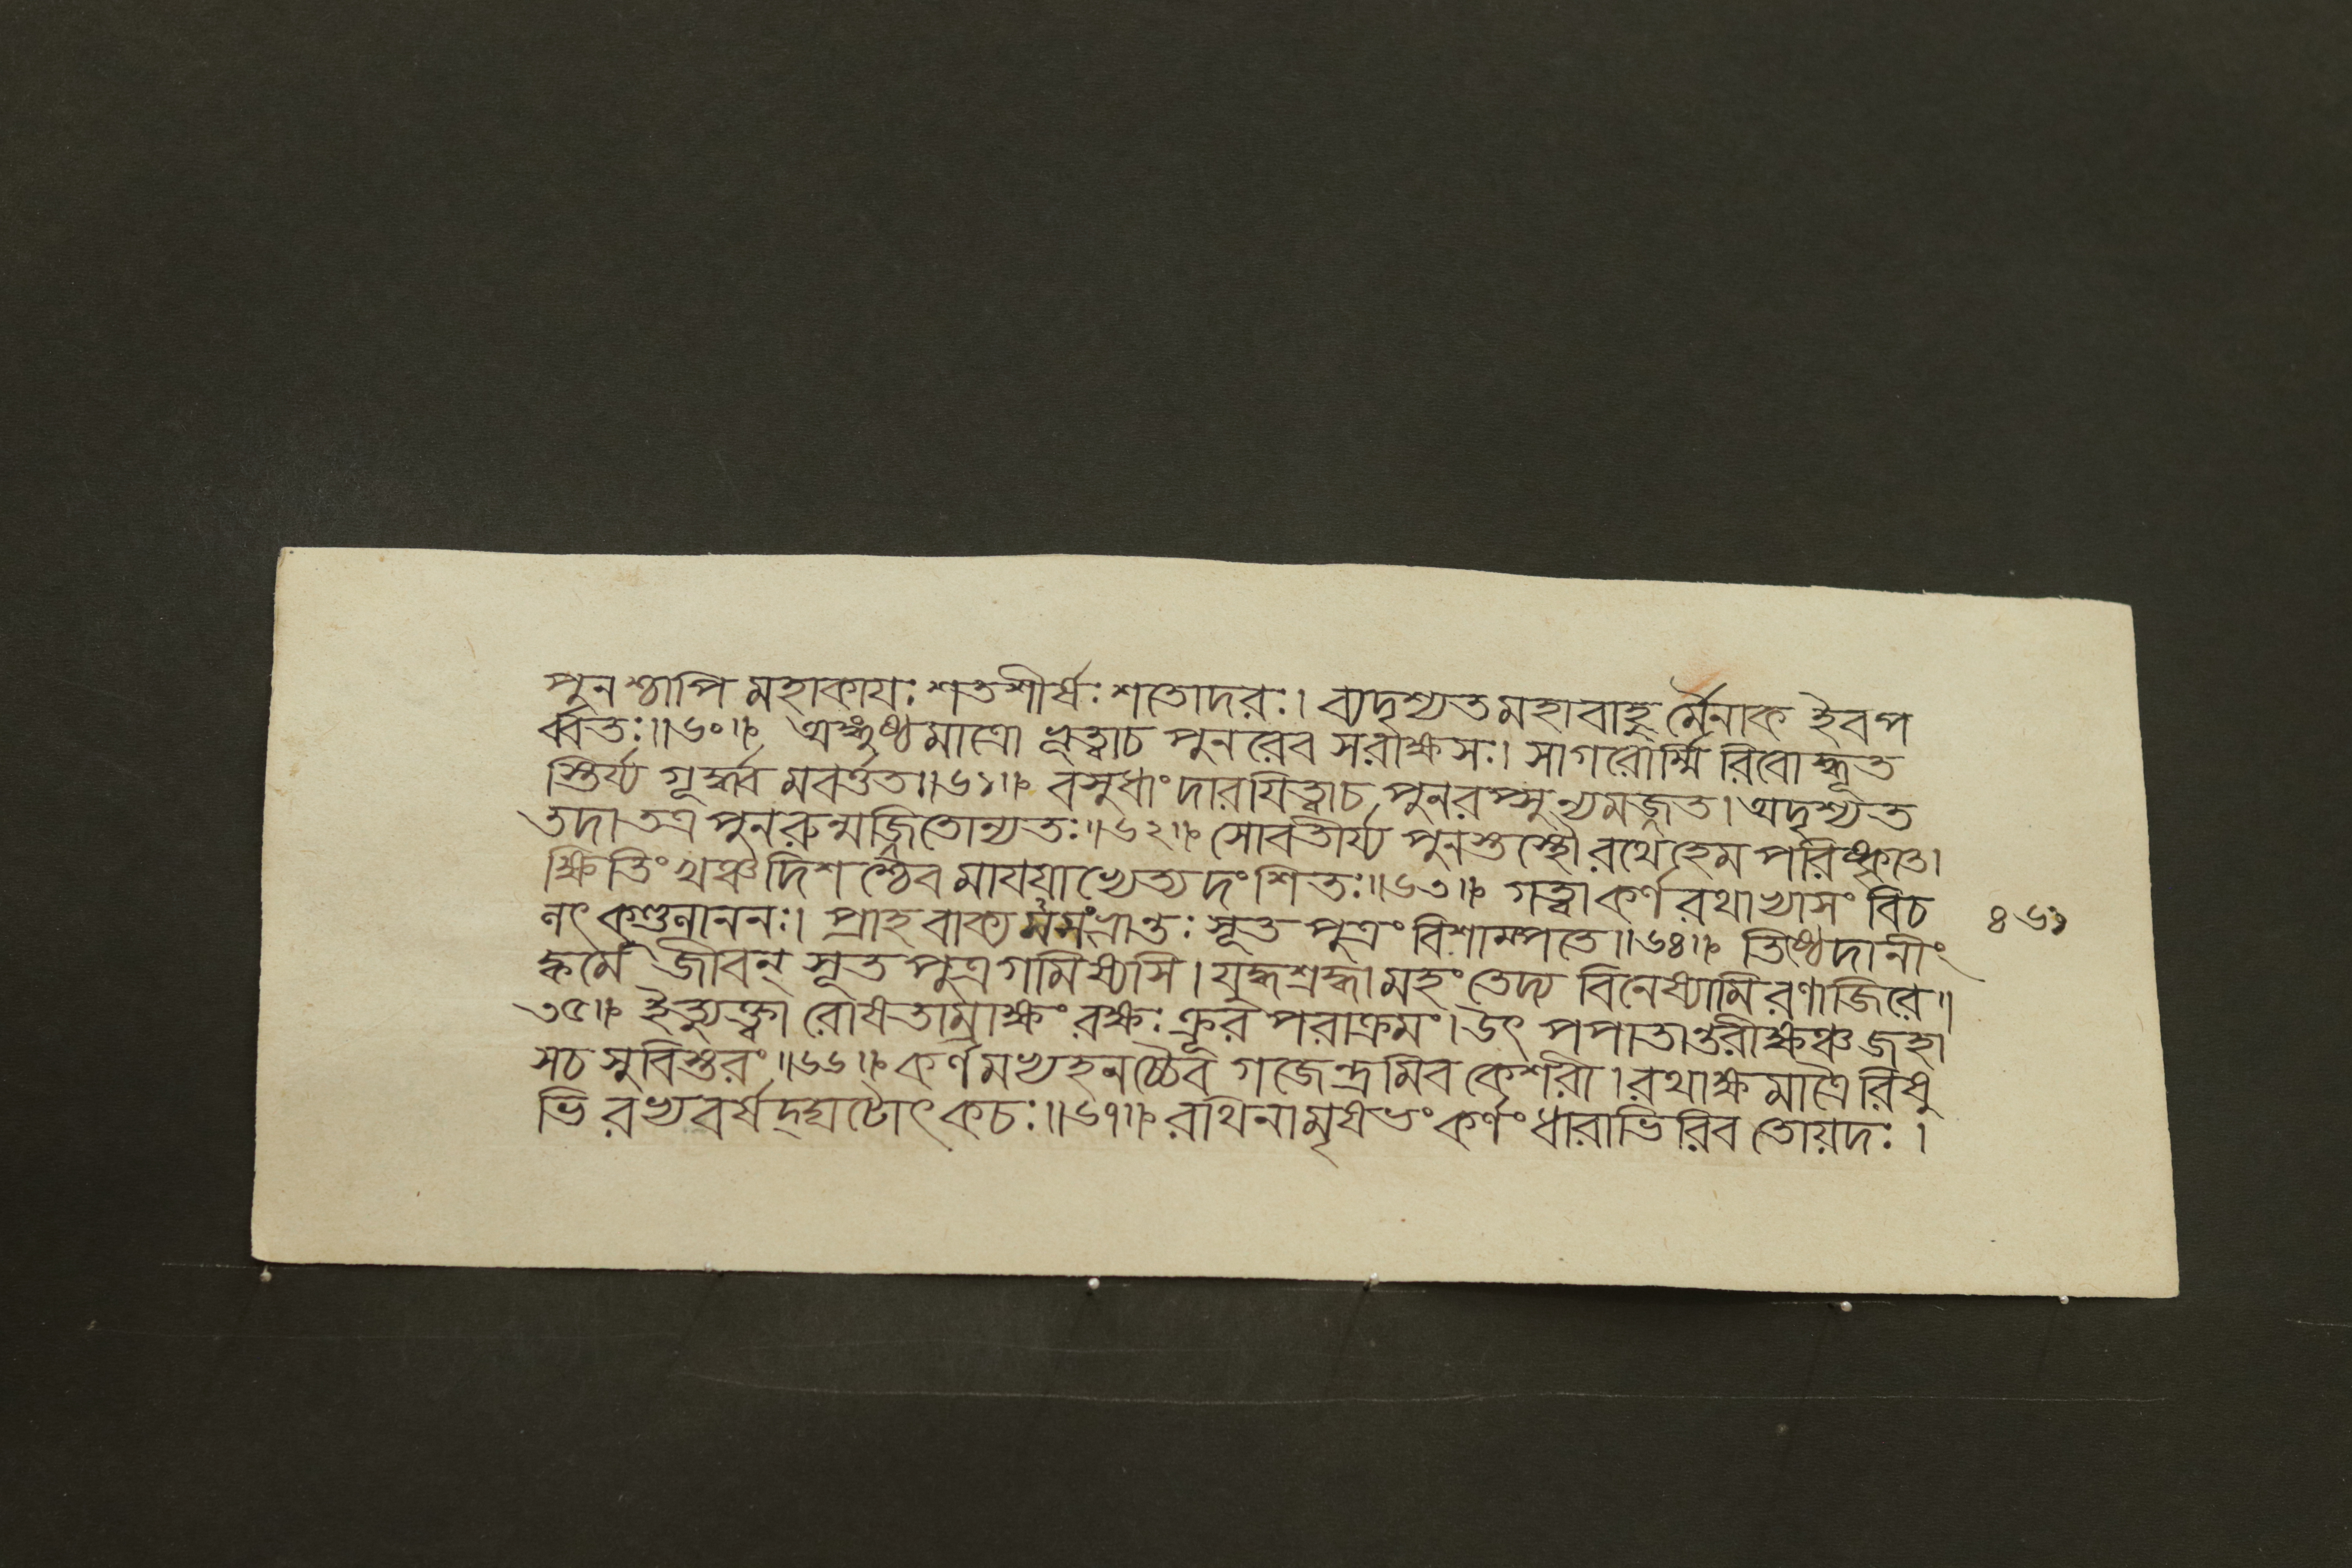 পুনশ্চাপি মহাকায়ঃ শতশীর্ষঃ শতোদরঃ। ব্যদৃশ্যত মহাবাহু র্মৈনাক ইব প
র্ব্বতঃ॥৬০॥ অঙ্গুষ্ঠ মাত্রো ভূত্বাচ পুনরেব সরাক্ষসঃ। সাগরোর্ম্মি রিবোদ্ধূত
স্তির্য্য গূর্দ্ধ্ব মবর্ত্তত॥৬১॥ বসুধাং দারয়িত্বাচ পুনরপ্সু ন্যমজ্জত। অদৃশ্যত
তদা তত্র পুনরুন্মজ্জিতোন্যতঃ॥৬২॥ সোবতীর্য্য পুনস্তস্থৌ রথে হেম পরিষ্কৃতে।
ক্ষিতিং খঞ্চ দিশ শ্চৈব মায়য়াভ্যেত্য দংশিতঃ॥৬৩॥ গত্বা কর্ণ রথাভ্যাসং বিচ
নৎ কুণ্ডনাননঃ। প্রাহ বাক্য মসংভ্রান্তঃ সূত পুত্রং বিশাম্পতে॥৬৪॥ তিষ্ঠেদানীং
ক্বমে জীবন্ সূত পুত্র গমিষ্যসি। যুদ্ধ শ্রদ্ধা মহং তেদ্য বিনেষ্যামি রণাজিরে॥
৩৫॥ ইত্যুক্ত্বা রোষতাম্রাক্ষং রক্ষঃ ক্রূর পরাক্রমং। উৎ পপাতান্তরীক্ষঞ্চ জহা
সচ সুবিস্তরং॥৬৬॥ কর্ণ মভ্যহনচ্চৈব গজেন্দ্র মিব কেশরী। রথাক্ষ মাত্রৈ রিষু
ভি রভ্য বর্ষদ্ ঘটোৎ কচঃ॥৬৭॥ রথিনা মৃষভং কর্ণং ধারাভি রিব তোয়দঃ।
৪৬১